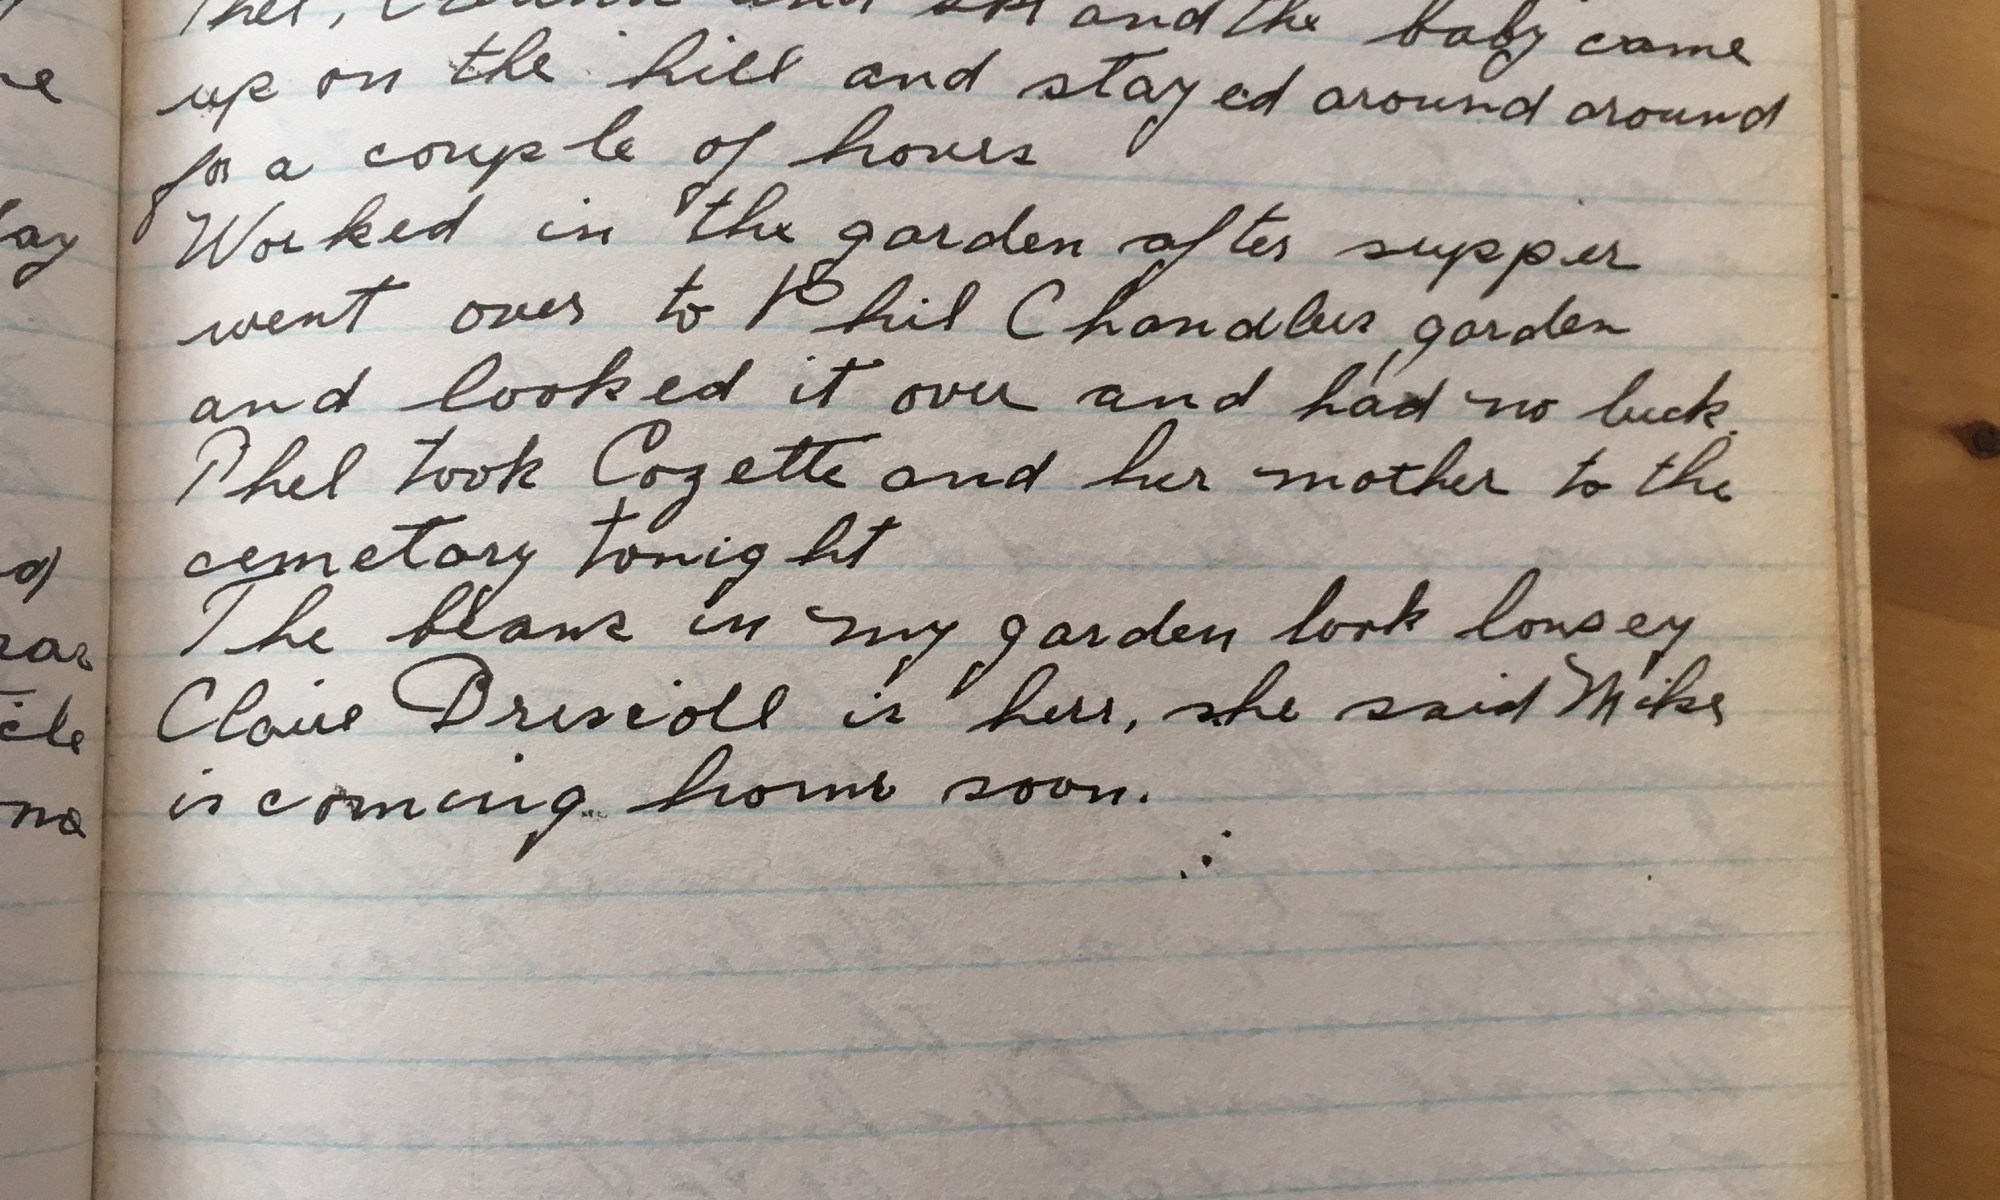 and the baby came
up on the hill and stayed around around
for a couple of hours
Worked in the garden after supper
went over to Phil Chandlers garden
and looked it over and had no luck.
Phel took Cozette and her mother to the
cemetary tonight
The beans in my garden look lousey
Claire Driscoll is here, she said Mike
is coming home soon.